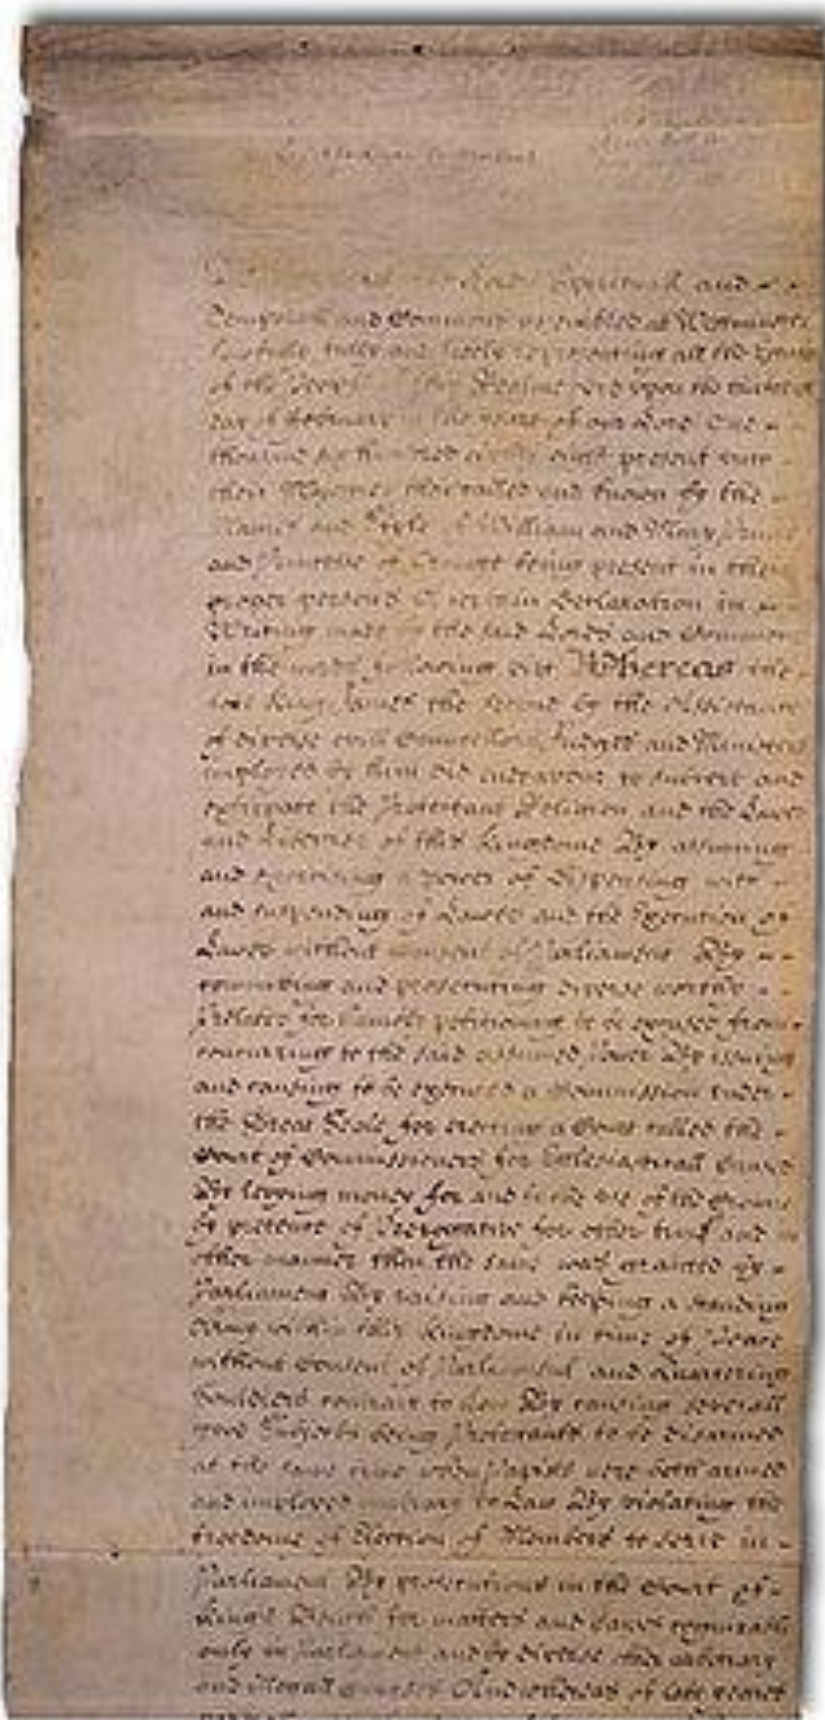 Lords Spirituall and
Temporall and Commons assembled at Westminster
Lawfully fully and freely representing all the Estates
of the People of this Realme did upon the thirteenth
day of February in the yeare of our Lord One
thousand six hundred eighty eight present unto
their Majesties then called and known by the
Names and Stile of William and Mary Prince
and Princesse of Orange being present in their
proper persons A certain Declaration in
Writing made by the said Lords and Commons
in the words following viz Whereas the
late King James the second by the Assistance
of diverse evill Councellors Judges and Ministers
imployed by him did endeavour to subvert and
extirpate the Protestant Religion and the Lawes
and Liberties of this Kingdome By assuming
and exercising a power of dispensing with
and suspending of Lawes and the Execution of
Lawes without consent of Parliament By
committing and prosecuting diverse worthy
Prelates for humbly petitioning to be excused from
concurring to the said assumed Power By issuing
and causing to be executed a Commission under
the Great Seale for erecting a Court called the
Court of Commissioners for Ecclesiasticall Causes
By levying money for and to the use of the Crowne
by pretence of Prerogative for other time and in
other manner then the same was granted by
Parliament By raising and keeping a standing
Army within this Kingdome in time of Peace
without Consent of Parliament and Quartering
Souldiers contrary to Law By causing severall
good Subjects being Protestants to be disarmed
at the same time when Papists were both armed
and imployed contrary to Law By violating the
freedome of Election of Members to serve in
Parliament By prosecutions in the Court of
Kings Bench for matters and causes cognizable
only in Parliament and by diverse other arbitrary
and illegall courses And whereas of late yeares